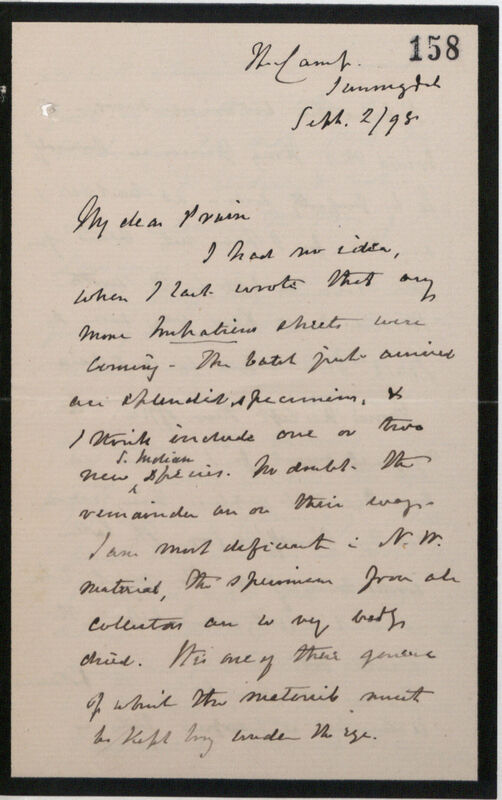 158
The Camp.
Sunningdale
Sept. 2/98
My dear Prain
I had no idea,
when I last wrote that any
more Impatiens sheets were
coming - The batch just arrived
are splendid specimens, &
I think include one or two
new S. Indian species. No doubt the
remainder are on their way.
I am most deficient in N.W.
material, the specimens from all
collectors are so very badly
dried. It is one of those genera
of which the materials must
be kept long under the eye.